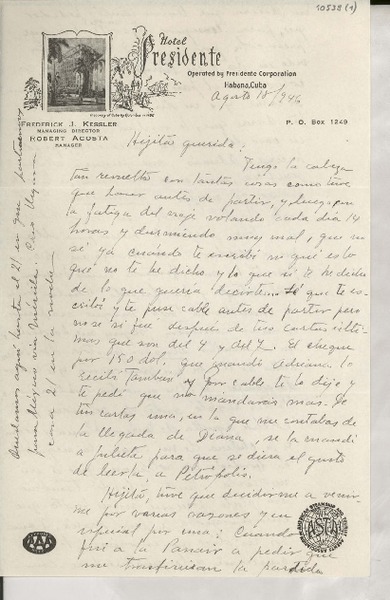 10538 (1)
Hotel
Presidente
Operated by Presidente Corporation
Habana, Cuba
Agosto 18/946
FREDERICK J. KESSLER
MANAGING DIRECTOR
ROBERT ACOSTA
MANAGER
P. O. Box 1249
Hijita querida:
Tengo la cabeza
tan revuelta con tantas cosas como tuve
que hacer antes de partir, y luego, por
la fatiga del viaje volando cada día 14
horas y durmiendo muy mal, que no
sé ya cuándo te escribí ni qué es lo
que no te he dicho y lo que sí te he dicho
de lo que quería decirte... Sé que te es-
cribí y te puse cable antes de partir pero
no sé si fue después de tus cartas últi-
mas que son del 4 y del 7. El cheque
por 150 dol. que mandó Adriana lo
recibí también y por cable te lo dije y
te pedí que no mandaras mas. De
tus cartas una, en la que me contabas de
la llegada de Diana, se la mandé
a Julieta para que se diera el gusto
de leerla a Petrópolis.
Hijita, tuve que decidirme a venir-
me por varias razones y en
especial por una: Cuando
fuí a la Panair a pedir que
me transfirieran la partida
Quedamos aquí hasta el 21 en que partiremos
para México vía Mérida. Para llegar
el 21 en la noche
AAA
ASTA